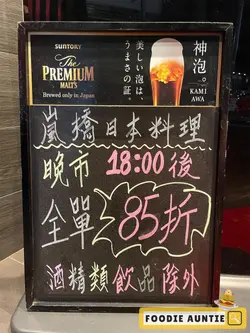 SUNTORY
The
PREMIUM
MALT'S
Brewed only in Japan
美しい泡は、
うまさの証。
神泡。
KAMI
AWA
嵐橋日本料理
晚市 18:00後
全單 85折
酒精類飲品除外
FOODIE AUNTIE